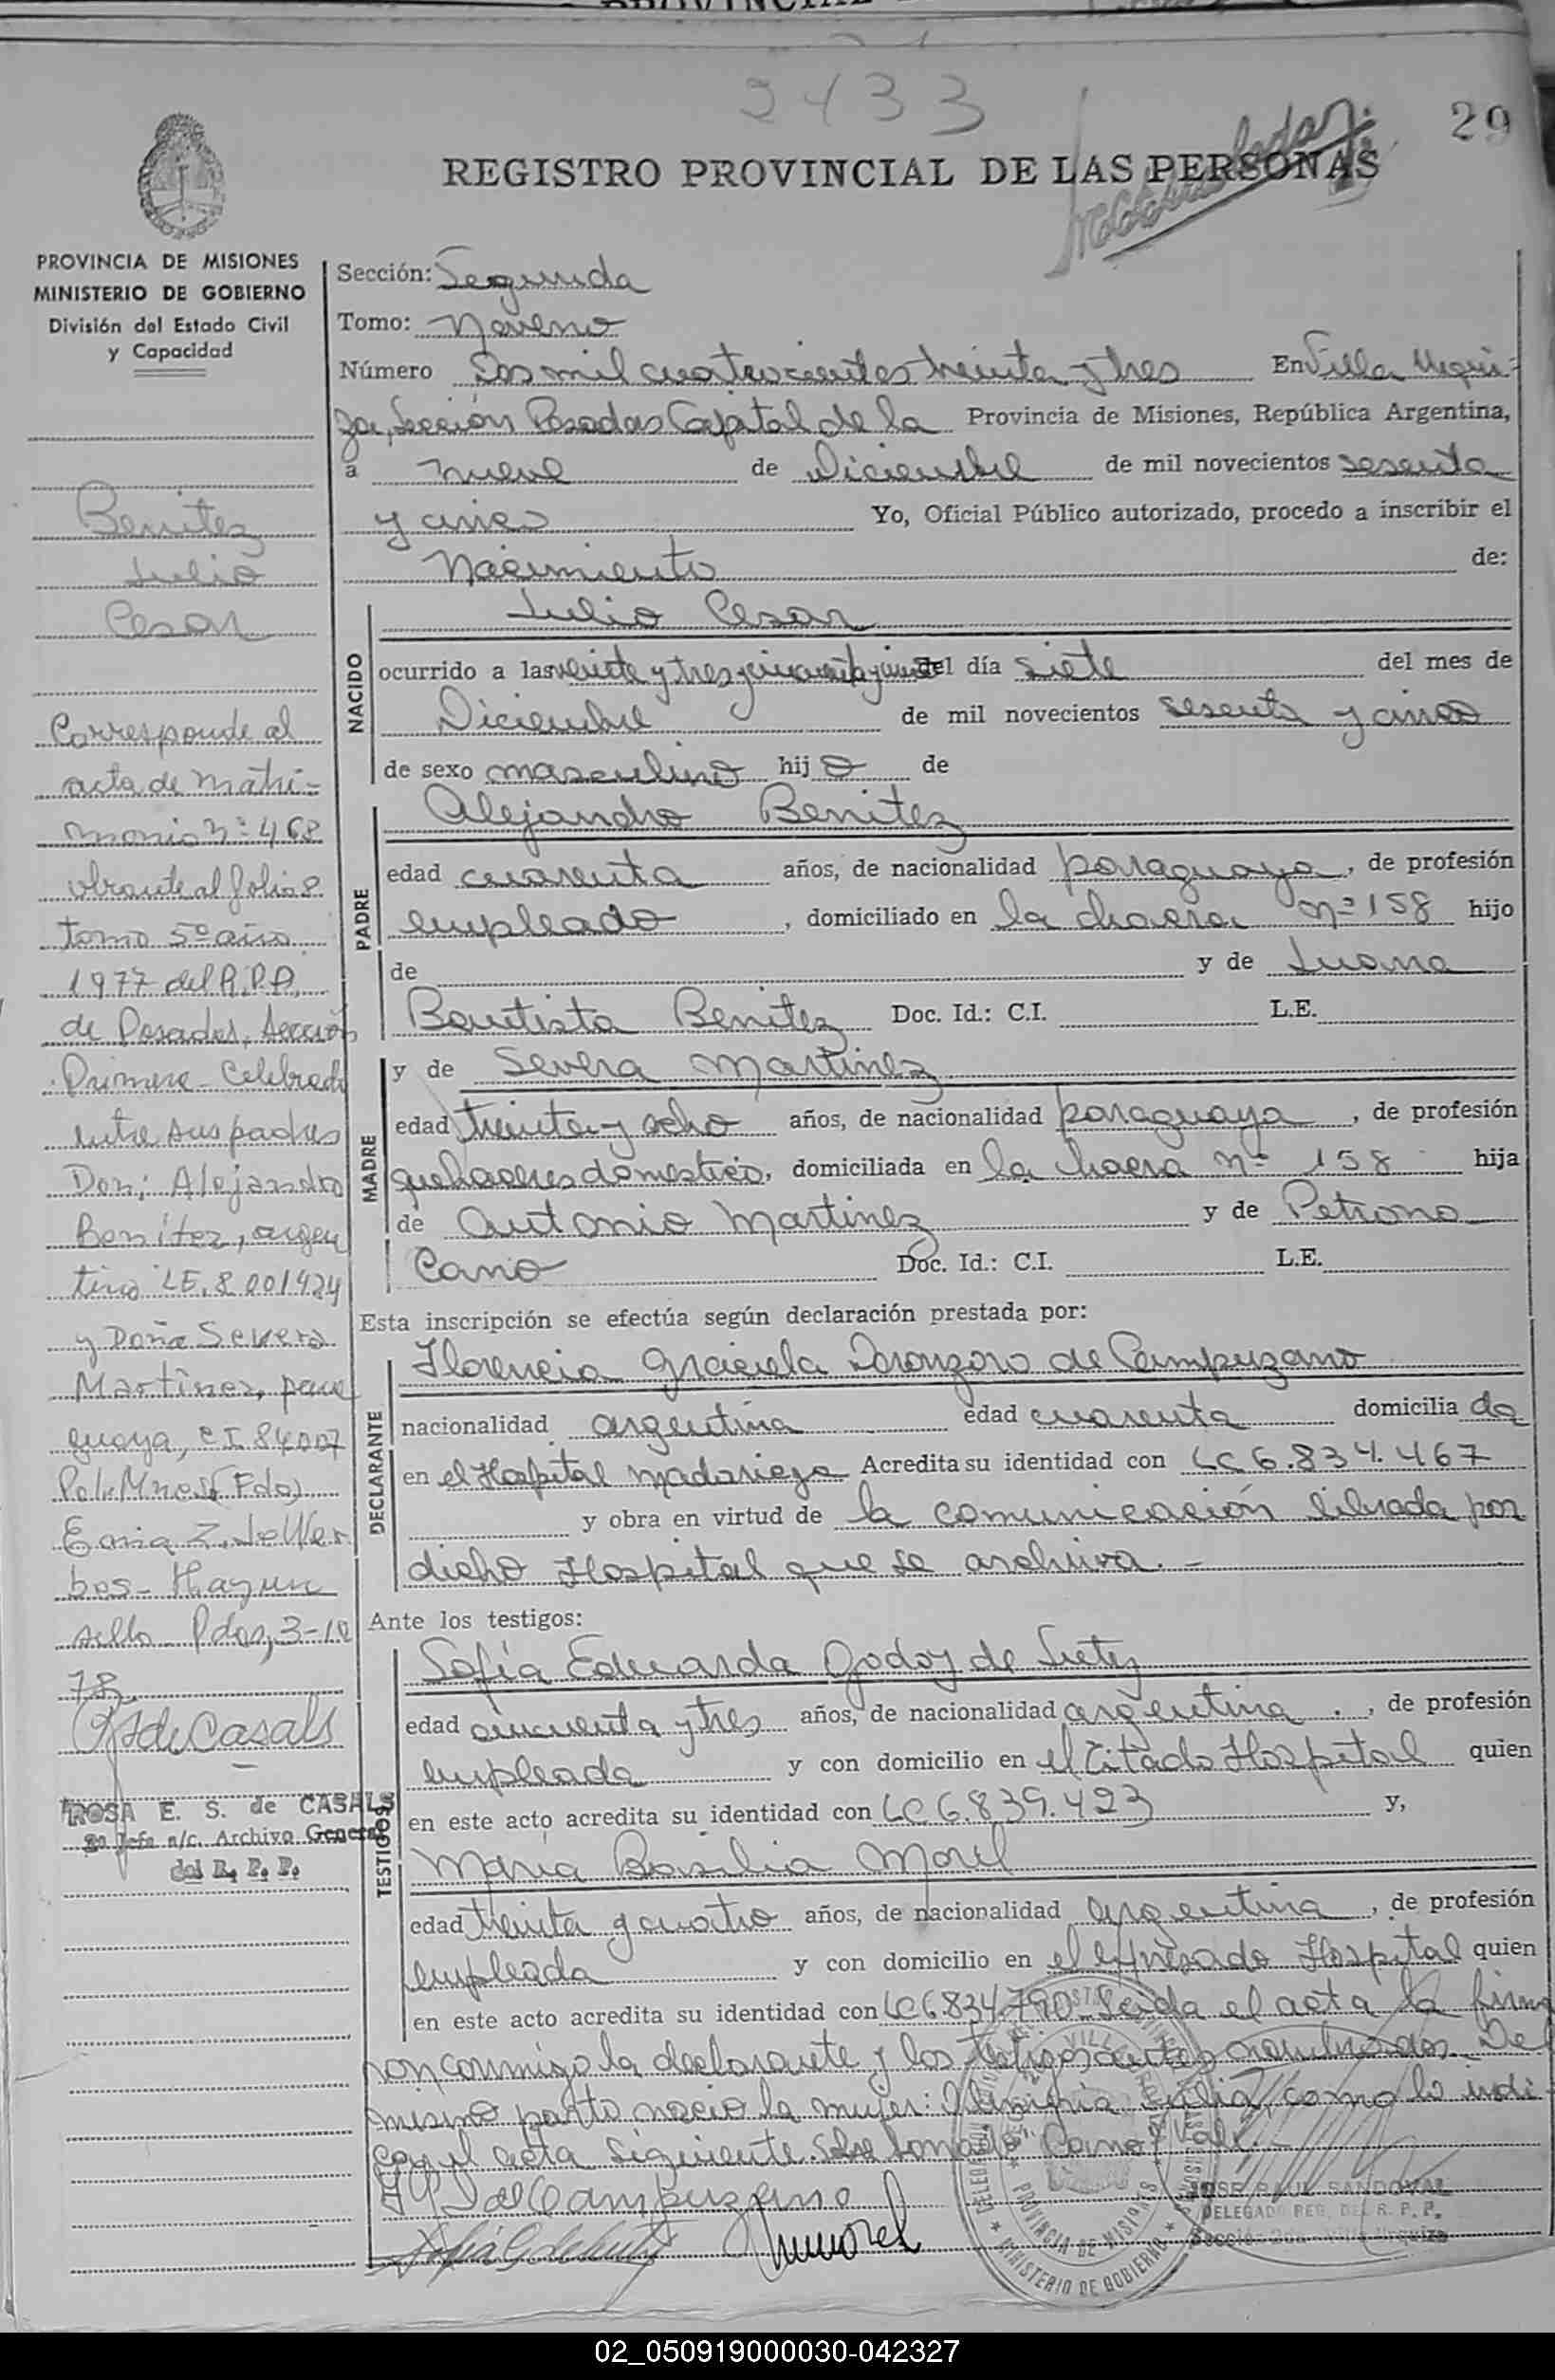 2433
29
REGISTRO PROVINCIAL DE LAS PERSONAS
PROVINCIA DE MISIONES
MINISTERIO DE GOBIERNO
División del Estado Civil
y Capacidad
Benitez
Julio
Cesar
Corresponde al
acta de matri-
monio nº 468
obrante al folio 8
tomo 5º año
1977 del R.P.P.
de Posadas, Sección
Primera - Celebrado
entre sus padres
Don: Alejandro
Benítez, argen
tino LE. 8 001424
y Doña Severa
Martinez, para
guaya, CI 84007
Pol. Mnes. (Fdo)
Z. de
sello Pdas, 3-10
78
R S de Casals
ROSA E. S. de CASALS
2º Jefe a/c. Archivo General
del R. P. P.
Sección: Segunda
Tomo: Noveno
Número Dos mil cuatrocientos treinta y tres En Villa Urqui-
za, Sección Posadas Capital de la Provincia de Misiones, República Argentina,
a nueve de Diciembre de mil novecientos sesenta
y cinco Yo, Oficial Público autorizado, procedo a inscribir el
Nacimiento de:
NACIDO
Julio Cesar
ocurrido a las veinte y tres y cincuenta y cinco del día siete del mes de
Diciembre de mil novecientos sesenta y cinco
de sexo masculino hijo de
PADRE
Alejandro Benitez
edad cuarenta años, de nacionalidad paraguaya, de profesión
empleado, domiciliado en la chacra nº 158 hijo
de y de Juana
Bautista Benitez Doc. Id.: C.I. L.E.
MADRE
y de Severa Martinez
edad treinta y ocho años, de nacionalidad paraguaya, de profesión
quehaceres domestico, domiciliada en la chacra nº 158 hija
de Antonio Martinez y de Petrona
Cano Doc. Id.: C.I. L.E.
Esta inscripción se efectúa según declaración prestada por:
DECLARANTE
Florencia Graciela de Campuzano
nacionalidad argentina edad cuarenta domicilia da
en el Hospital Madariaga Acredita su identidad con LC 6.834.467
y obra en virtud de la comunicación librada por
dicho Hospital que se archiva.-
Ante los testigos:
TESTIGOS
Sofía Eduarda Godoy de
edad cincuenta y tres años, de nacionalidad argentina, de profesión
empleada y con domicilio en el Citado Hospital quien
en este acto acredita su identidad con LC 6.839.423 y,
Maria Basilia Morel
edad treinta y cuatro años, de nacionalidad argentina, de profesión
empleada y con domicilio en el expresado Hospital quien
en este acto acredita su identidad con LC 6.834.790 Leida el acta la firma
ron conmigo la declarante y los testigos antes nombrados. Del
mismo parto nacio la mujer: Julia, como lo indi
ca el acta siguiente. Sobre borrado: "Cano" Vale.-
de Campuzano
MMorel
PROVINCIA DE MISIONES
MINISTERIO DE GOBIERNO
JOSE RAUL SANDOVAL
DELEGADO REG. DEL R. P. P.
Sección 2da. Villa Urquiza
02_050919000030-042327